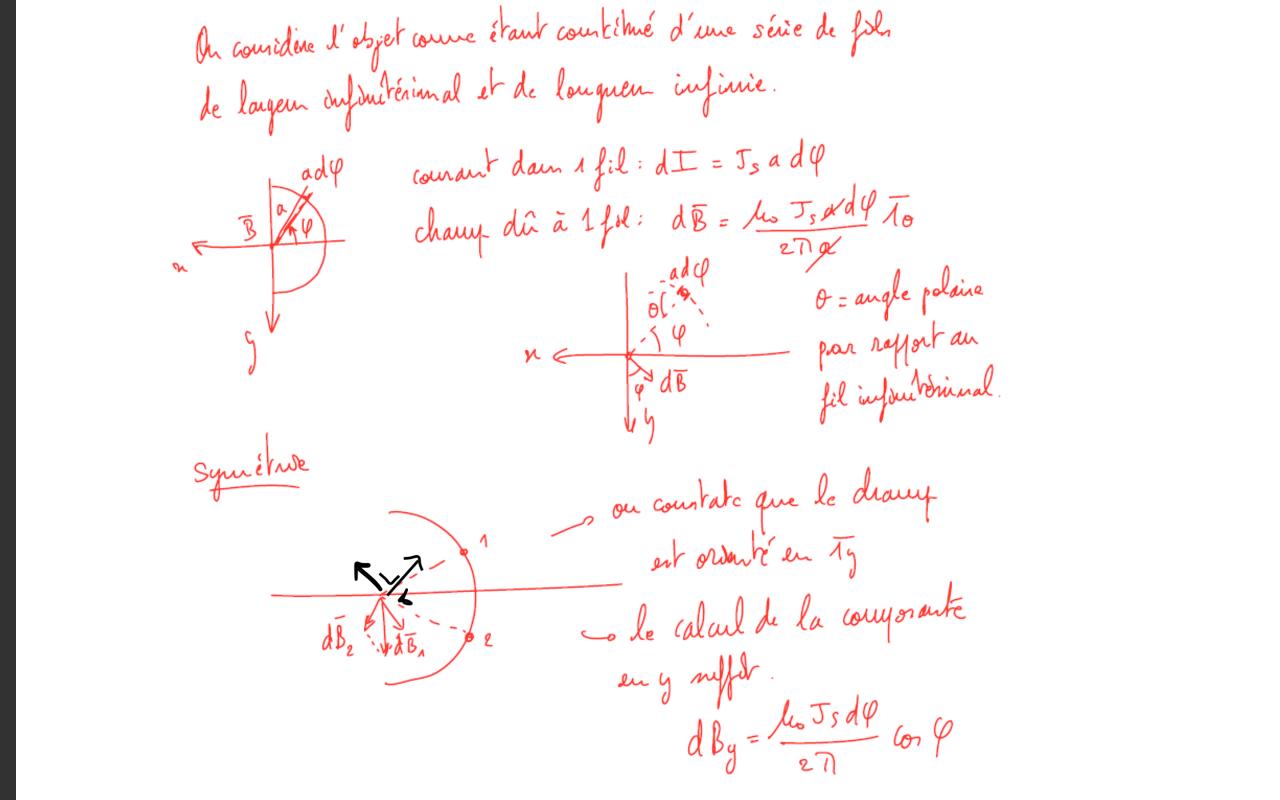 On considère l'objet comme étant constitué d'une série de fils
de largeur infinitésimal et de longueur infinie.
adφ
a
φ
B̄
x
y
courant dans 1 fil : dI = Js a dφ
champ dû à 1 fil : dB̄ = μ₀ Js a dφ / 2π a 1̄θ
adφ
θ
φ
x
φ dB̄
y
θ = angle polaire
par rapport au
fil infinitésimal.
Symétrie
1
2
dB̄₂
dB̄₁
on constate que le champ
est orienté en 1̄y
le calcul de la composante
en y suffit.
dBy = μ₀ Js dφ / 2π cos φ